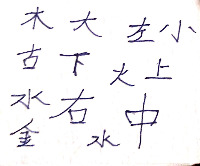 木 大 左 小
古 下 火 上
水 右 中
金 水